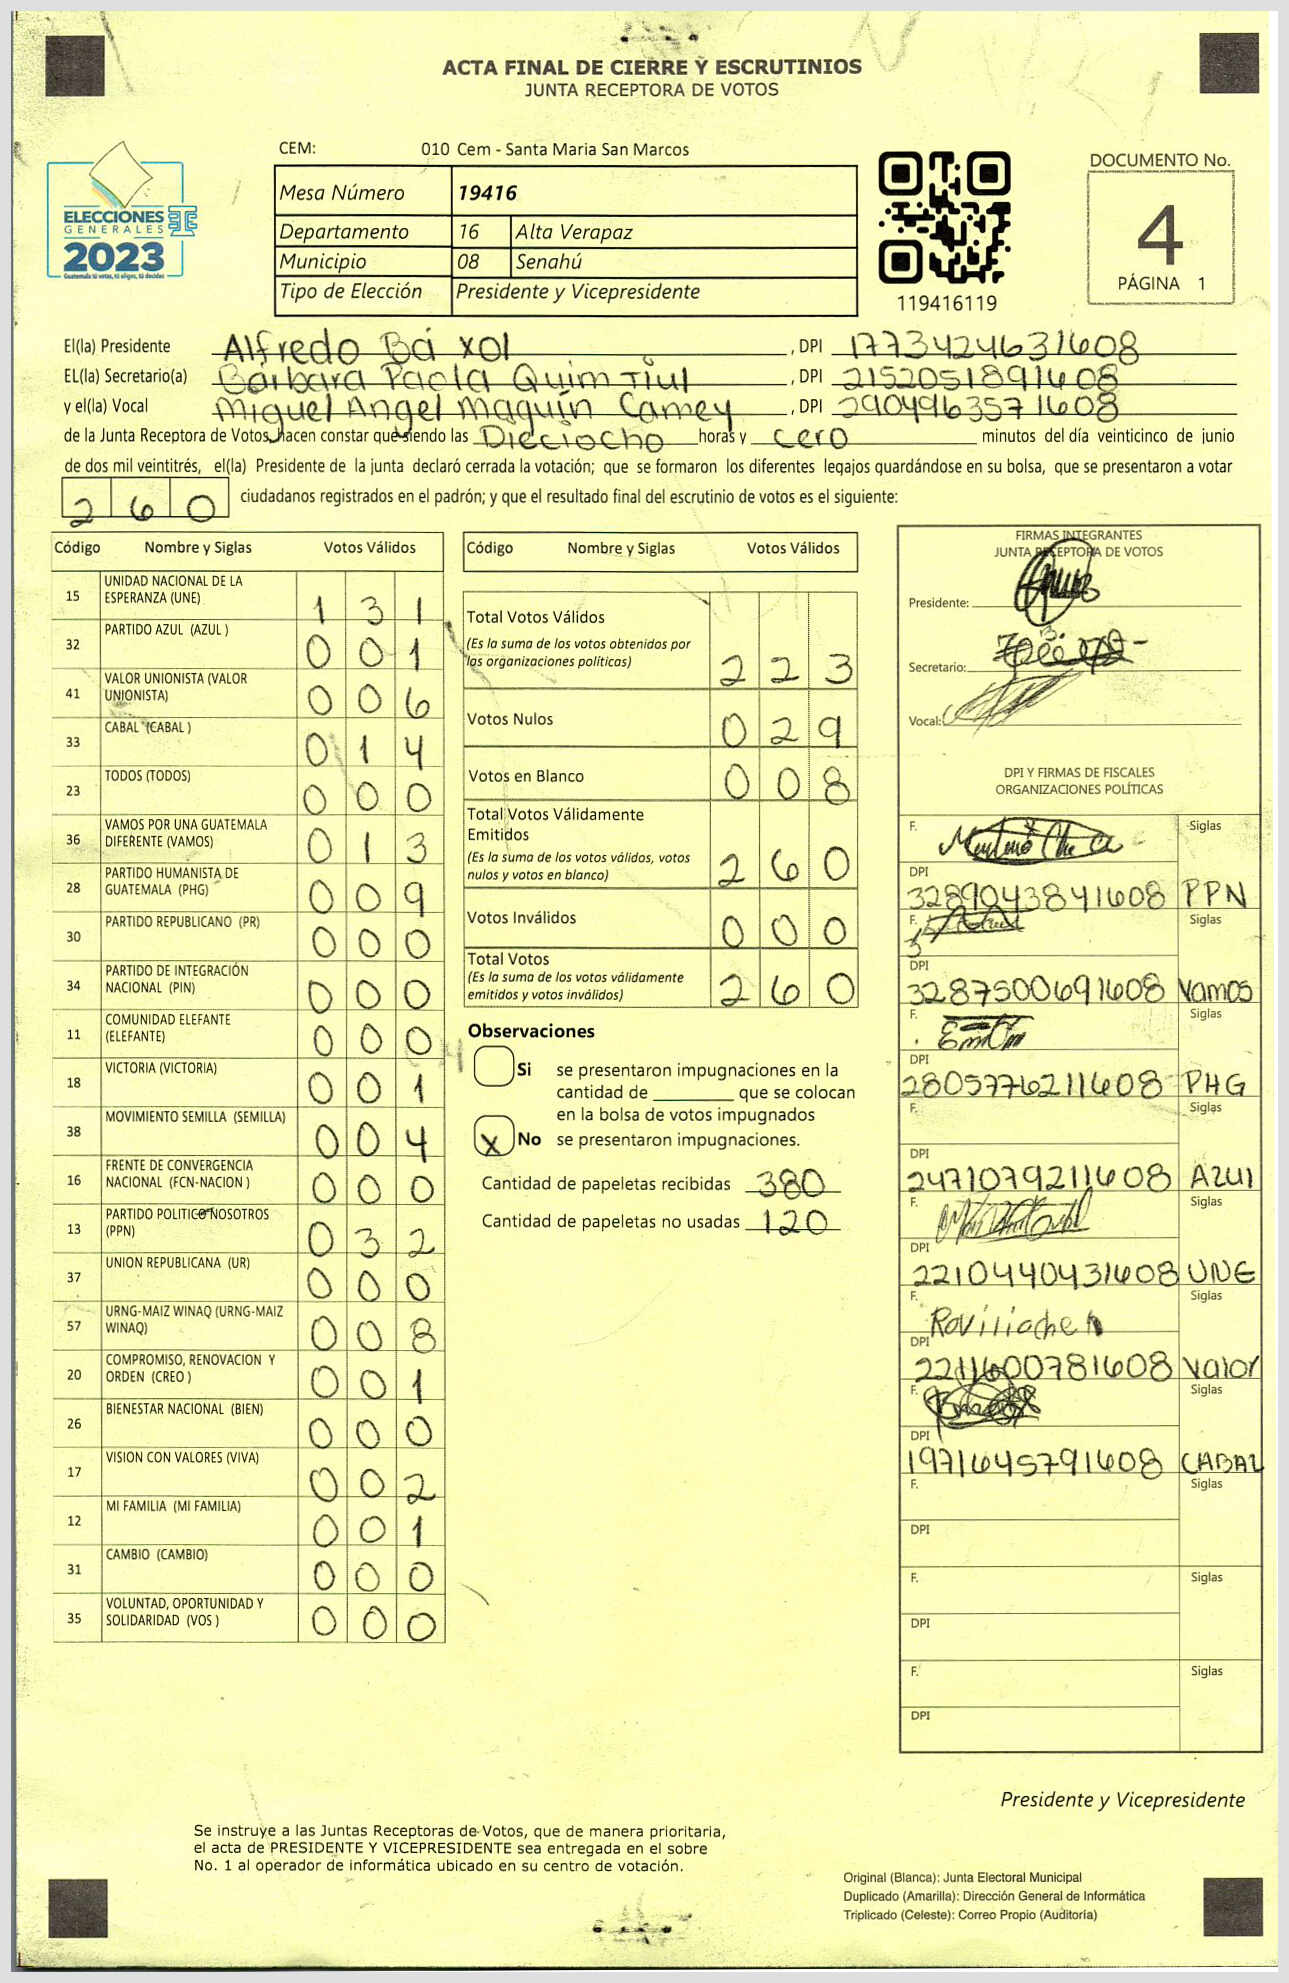 ACTA FINAL DE CIERRE Y ESCRUTINIOS
JUNTA RECEPTORA DE VOTOS
CEM: 010 Cem - Santa Maria San Marcos
ELECCIONES
GENERALES
2023
Guatemala tú votas, tú eliges, tú decides
Mesa Número 19416
Departamento 16 Alta Verapaz
Municipio 08 Senahú
Tipo de Elección Presidente y Vicepresidente
119416119
DOCUMENTO No.
4
PÁGINA 1
El(la) Presidente Alfredo Bá xol , DPI 1773424631608
EL(la) Secretario(a) Bárbara Paola Quim Tiul , DPI 2152051891608
y el(la) Vocal Miguel Angel Maquín Camey , DPI 2904963571608
de la Junta Receptora de Votos, hacen constar que siendo las Dieciocho horas y cero minutos del día veinticinco de junio
de dos mil veintitrés, el(la) Presidente de la junta declaró cerrada la votación; que se formaron los diferentes legajos guardándose en su bolsa, que se presentaron a votar
260 ciudadanos registrados en el padrón; y que el resultado final del escrutinio de votos es el siguiente:
Código Nombre y Siglas Votos Válidos
15 UNIDAD NACIONAL DE LA ESPERANZA (UNE) 1 3 1
32 PARTIDO AZUL (AZUL ) 0 0 1
41 VALOR UNIONISTA (VALOR UNIONISTA) 0 0 6
33 CABAL (CABAL ) 0 1 4
23 TODOS (TODOS) 0 0 0
36 VAMOS POR UNA GUATEMALA DIFERENTE (VAMOS) 0 1 3
28 PARTIDO HUMANISTA DE GUATEMALA (PHG) 0 0 9
30 PARTIDO REPUBLICANO (PR) 0 0 0
34 PARTIDO DE INTEGRACIÓN NACIONAL (PIN) 0 0 0
11 COMUNIDAD ELEFANTE (ELEFANTE) 0 0 0
18 VICTORIA (VICTORIA) 0 0 1
38 MOVIMIENTO SEMILLA (SEMILLA) 0 0 4
16 FRENTE DE CONVERGENCIA NACIONAL (FCN-NACION ) 0 0 0
13 PARTIDO POLITICO NOSOTROS (PPN) 0 3 2
37 UNION REPUBLICANA (UR) 0 0 0
57 URNG-MAIZ WINAQ (URNG-MAIZ WINAQ) 0 0 8
20 COMPROMISO, RENOVACION Y ORDEN (CREO ) 0 0 1
26 BIENESTAR NACIONAL (BIEN) 0 0 0
17 VISION CON VALORES (VIVA) 0 0 2
12 MI FAMILIA (MI FAMILIA) 0 0 1
31 CAMBIO (CAMBIO) 0 0 0
35 VOLUNTAD, OPORTUNIDAD Y SOLIDARIDAD (VOS ) 0 0 0
Código Nombre y Siglas Votos Válidos
Total Votos Válidos 2 2 3
(Es la suma de los votos obtenidos por
las organizaciones políticas)
Votos Nulos 0 2 9
Votos en Blanco 0 0 8
Total Votos Válidamente
Emitidos 2 6 0
(Es la suma de los votos válidos, votos
nulos y votos en blanco)
Votos Inválidos 0 0 0
Total Votos 2 6 0
(Es la suma de los votos válidamente
emitidos y votos inválidos)
Observaciones
Si se presentaron impugnaciones en la
cantidad de ________ que se colocan
en la bolsa de votos impugnados
X No se presentaron impugnaciones.
Cantidad de papeletas recibidas 380
Cantidad de papeletas no usadas 120
FIRMAS INTEGRANTES
JUNTA RECEPTORA DE VOTOS
Presidente:
Secretario:
Vocal:
DPI Y FIRMAS DE FISCALES
ORGANIZACIONES POLÍTICAS
F. Siglas
DPI
3289043841608 PPN
F. Siglas
DPI
3287500691608 Vamos
F. Siglas
DPI
2805776211608 PHG
F. Siglas
DPI
2471079211608 AZUl
F. Siglas
DPI
2210440431608 UNE
F. Siglas
DPI
2211600781608 Valor
F. Siglas
DPI
1971645791608 CABAL
F. Siglas
DPI
F. Siglas
DPI
F. Siglas
DPI
Presidente y Vicepresidente
Se instruye a las Juntas Receptoras de Votos, que de manera prioritaria,
el acta de PRESIDENTE Y VICEPRESIDENTE sea entregada en el sobre
No. 1 al operador de informática ubicado en su centro de votación.
Original (Blanca): Junta Electoral Municipal
Duplicado (Amarilla): Dirección General de Informática
Triplicado (Celeste): Correo Propio (Auditoría)